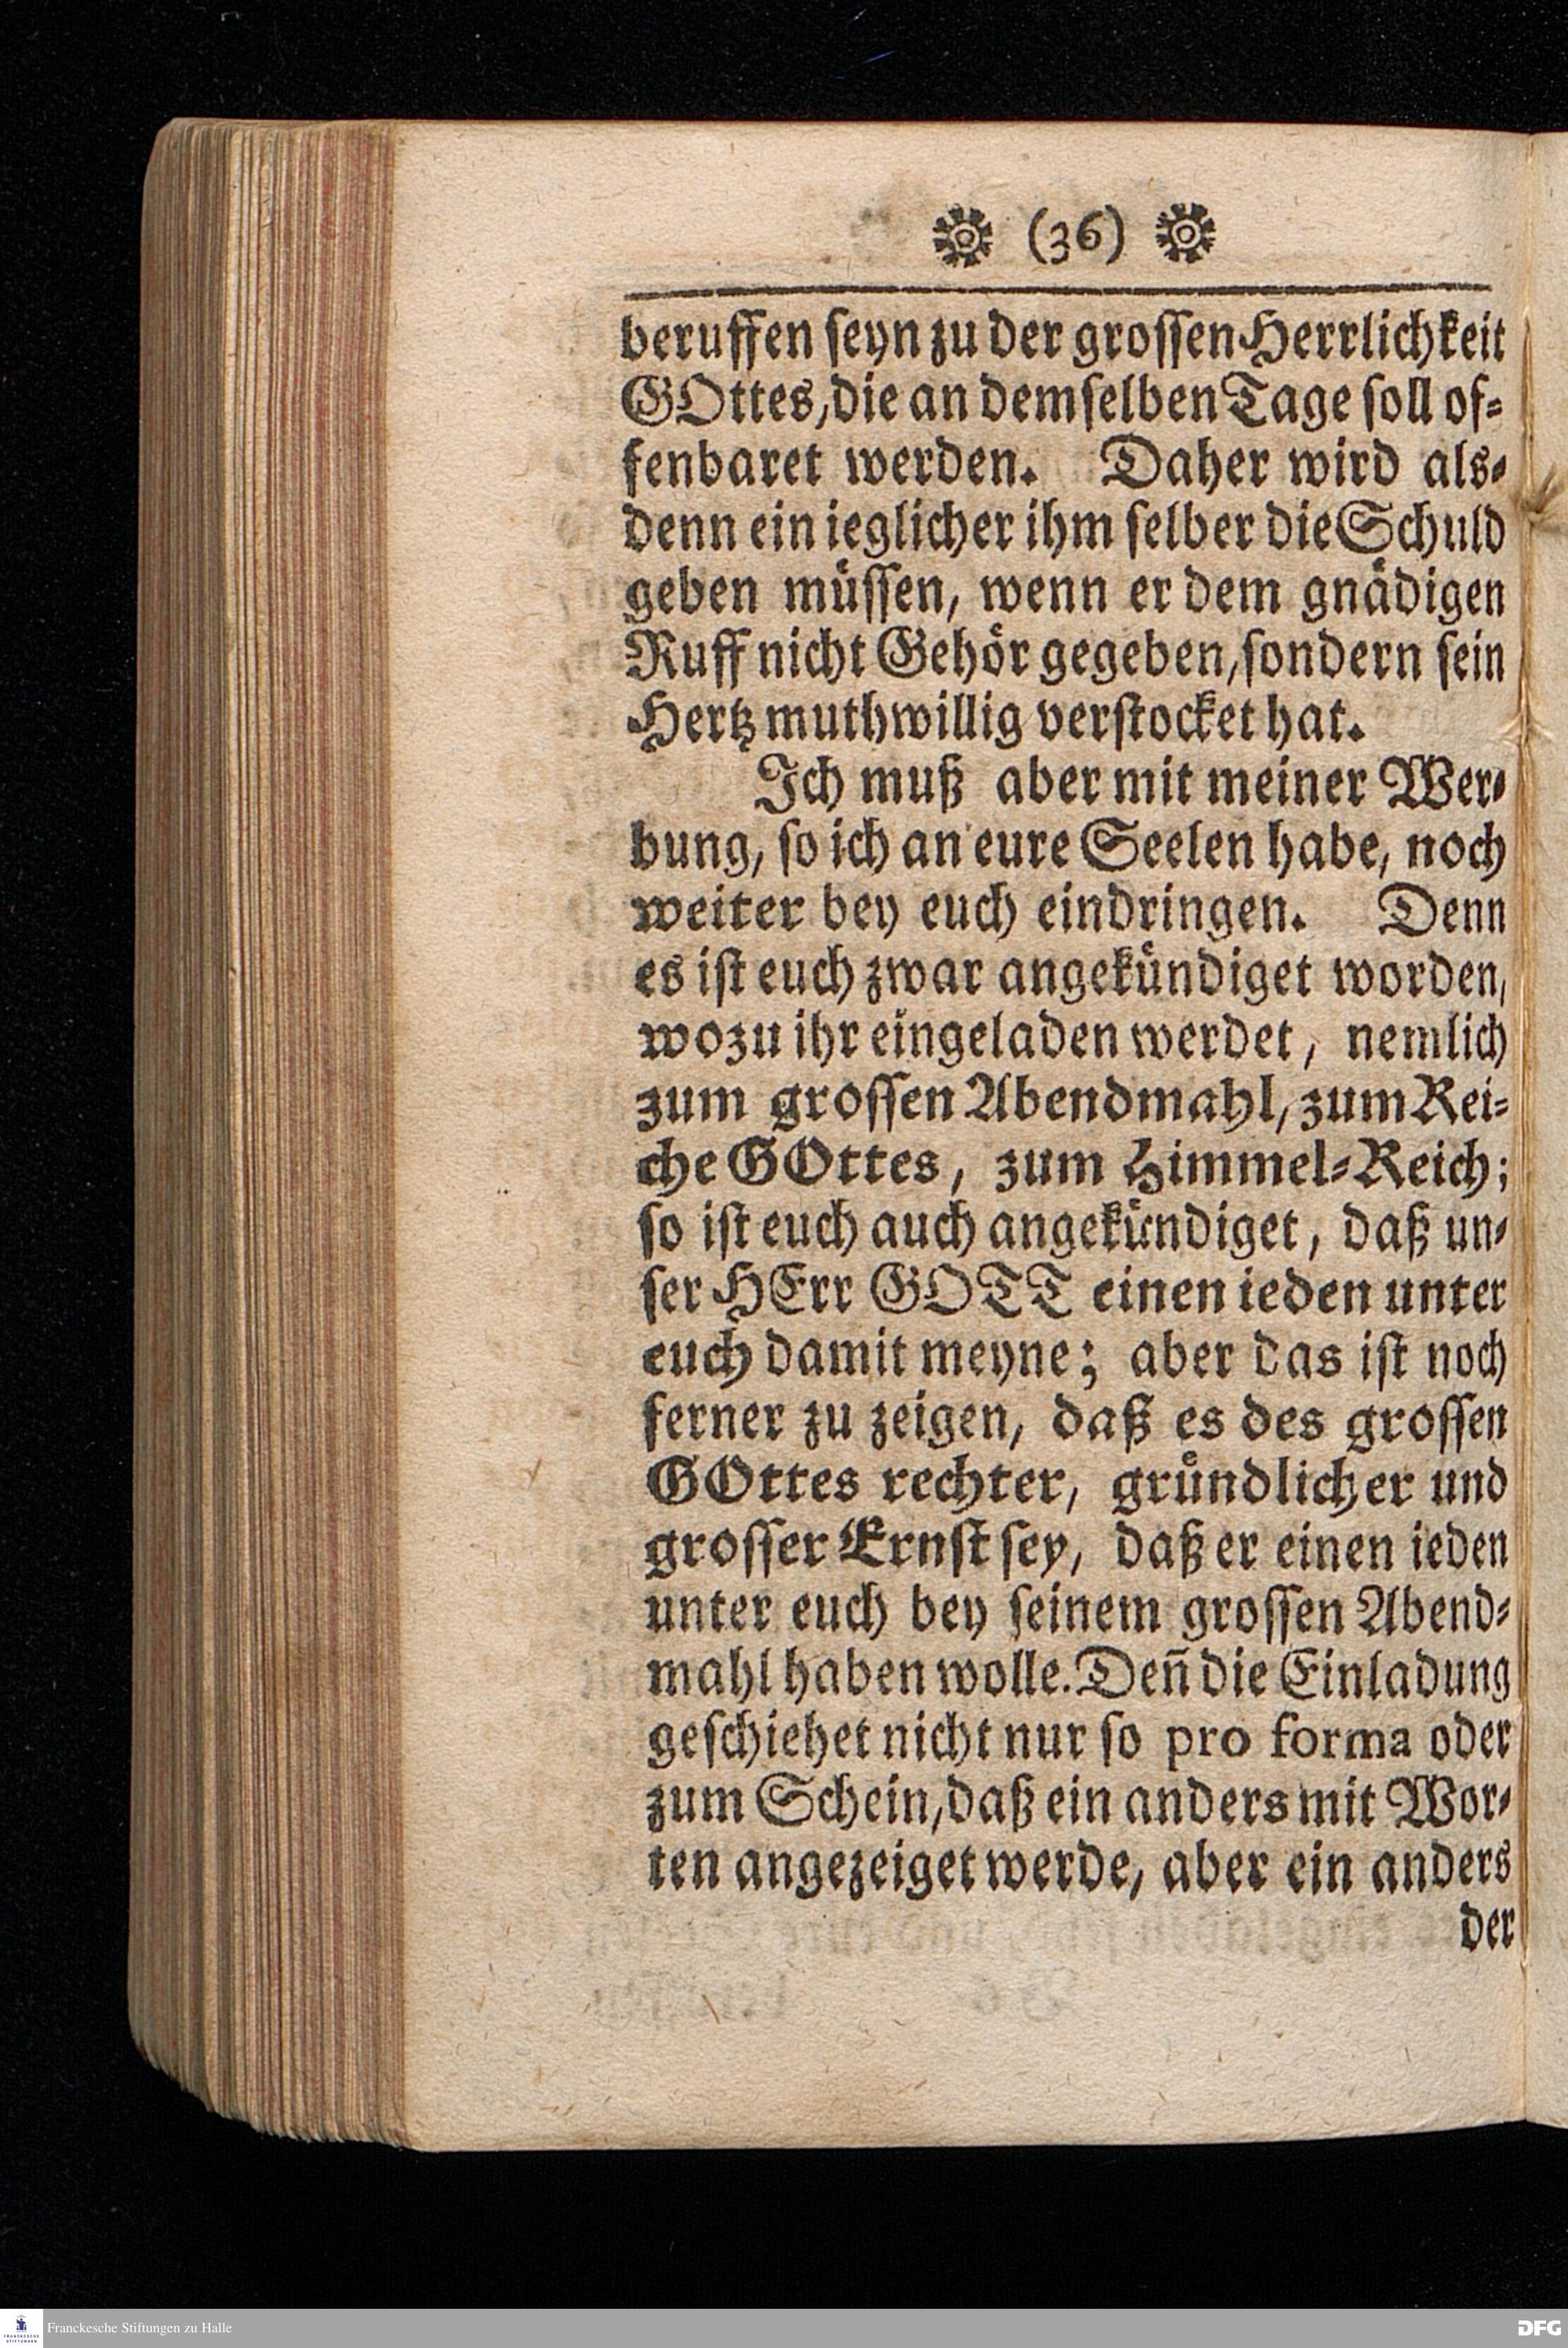 (36)
beruffen ſeyn zu der groſſen Herrlichkeit
GOttes, die an demſelben Tage ſoll of-
fenbaret werden. Daher wird als-
denn ein ieglicher ihm ſelber die Schuld
geben müſſen, wenn er dem gnädigen
Ruff nicht Gehör gegeben, ſondern ſein
Hertz muthwillig verſtocket hat.
Ich muß aber mit meiner Wer-
bung, ſo ich an eure Seelen habe, noch
weiter bey euch eindringen. Denn
es iſt euch zwar angekündiget worden,
wozu ihr eingeladen werdet, nemlich
zum groſſen Abendmahl, zum Rei-
che GOttes, zum Himmel-Reich;
ſo iſt euch auch angekündiget, daß un-
ſer HErr GOTT einen ieden unter
euch damit meyne; aber das iſt noch
ferner zu zeigen, daß es des groſſen
GOttes rechter, gründlicher und
groſſer Ernſt ſey, daß er einen ieden
unter euch bey ſeinem groſſen Abend-
mahl haben wolle. Deñ die Einladung
geſchiehet nicht nur ſo pro forma oder
zum Schein, daß ein anders mit Wor-
ten angezeiget werde, aber ein anders
der
Franckesche Stiftungen zu Halle
DFG